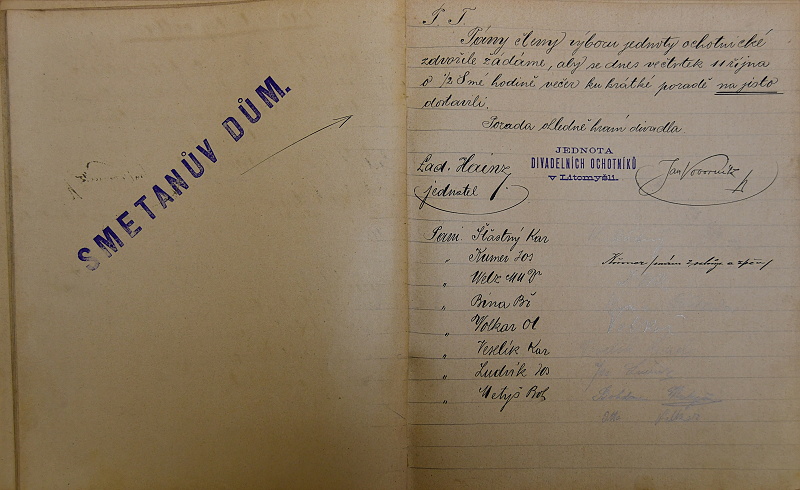 SMETANŮV DŮM.
P. T.
Pány členy výboru jednoty ochotnické
zdvořile žádáme, aby se dnes ve čtvrtek 11 října
o 1/2 8 mé hodině večer ku krátké poradě na jisto
dostavili.
Porada ohledně hraní divadla.
Lad. Hainz
jednatel
JEDNOTA
DIVADELNÍCH OCHOTNÍKŮ
v Litomyšli.
Jan Voborník
Páni Šťastný Kar
" Kumer Jos
" Welz
" Bína
" Volkar Ot
" Veselík Kar
" Ludvík Jos
" Metyš Boh